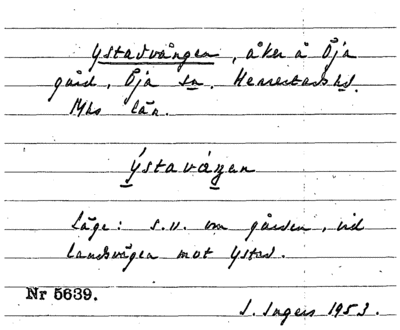 Ystadvången, åker å Öja
gård, Öja sn. Herrestads hd.
Mhs län.
Ystaváŋan
Läge: s.v. om gården, vid
landsvägen mot Ystad.
Nr 5639.
I. Ingers 1953.